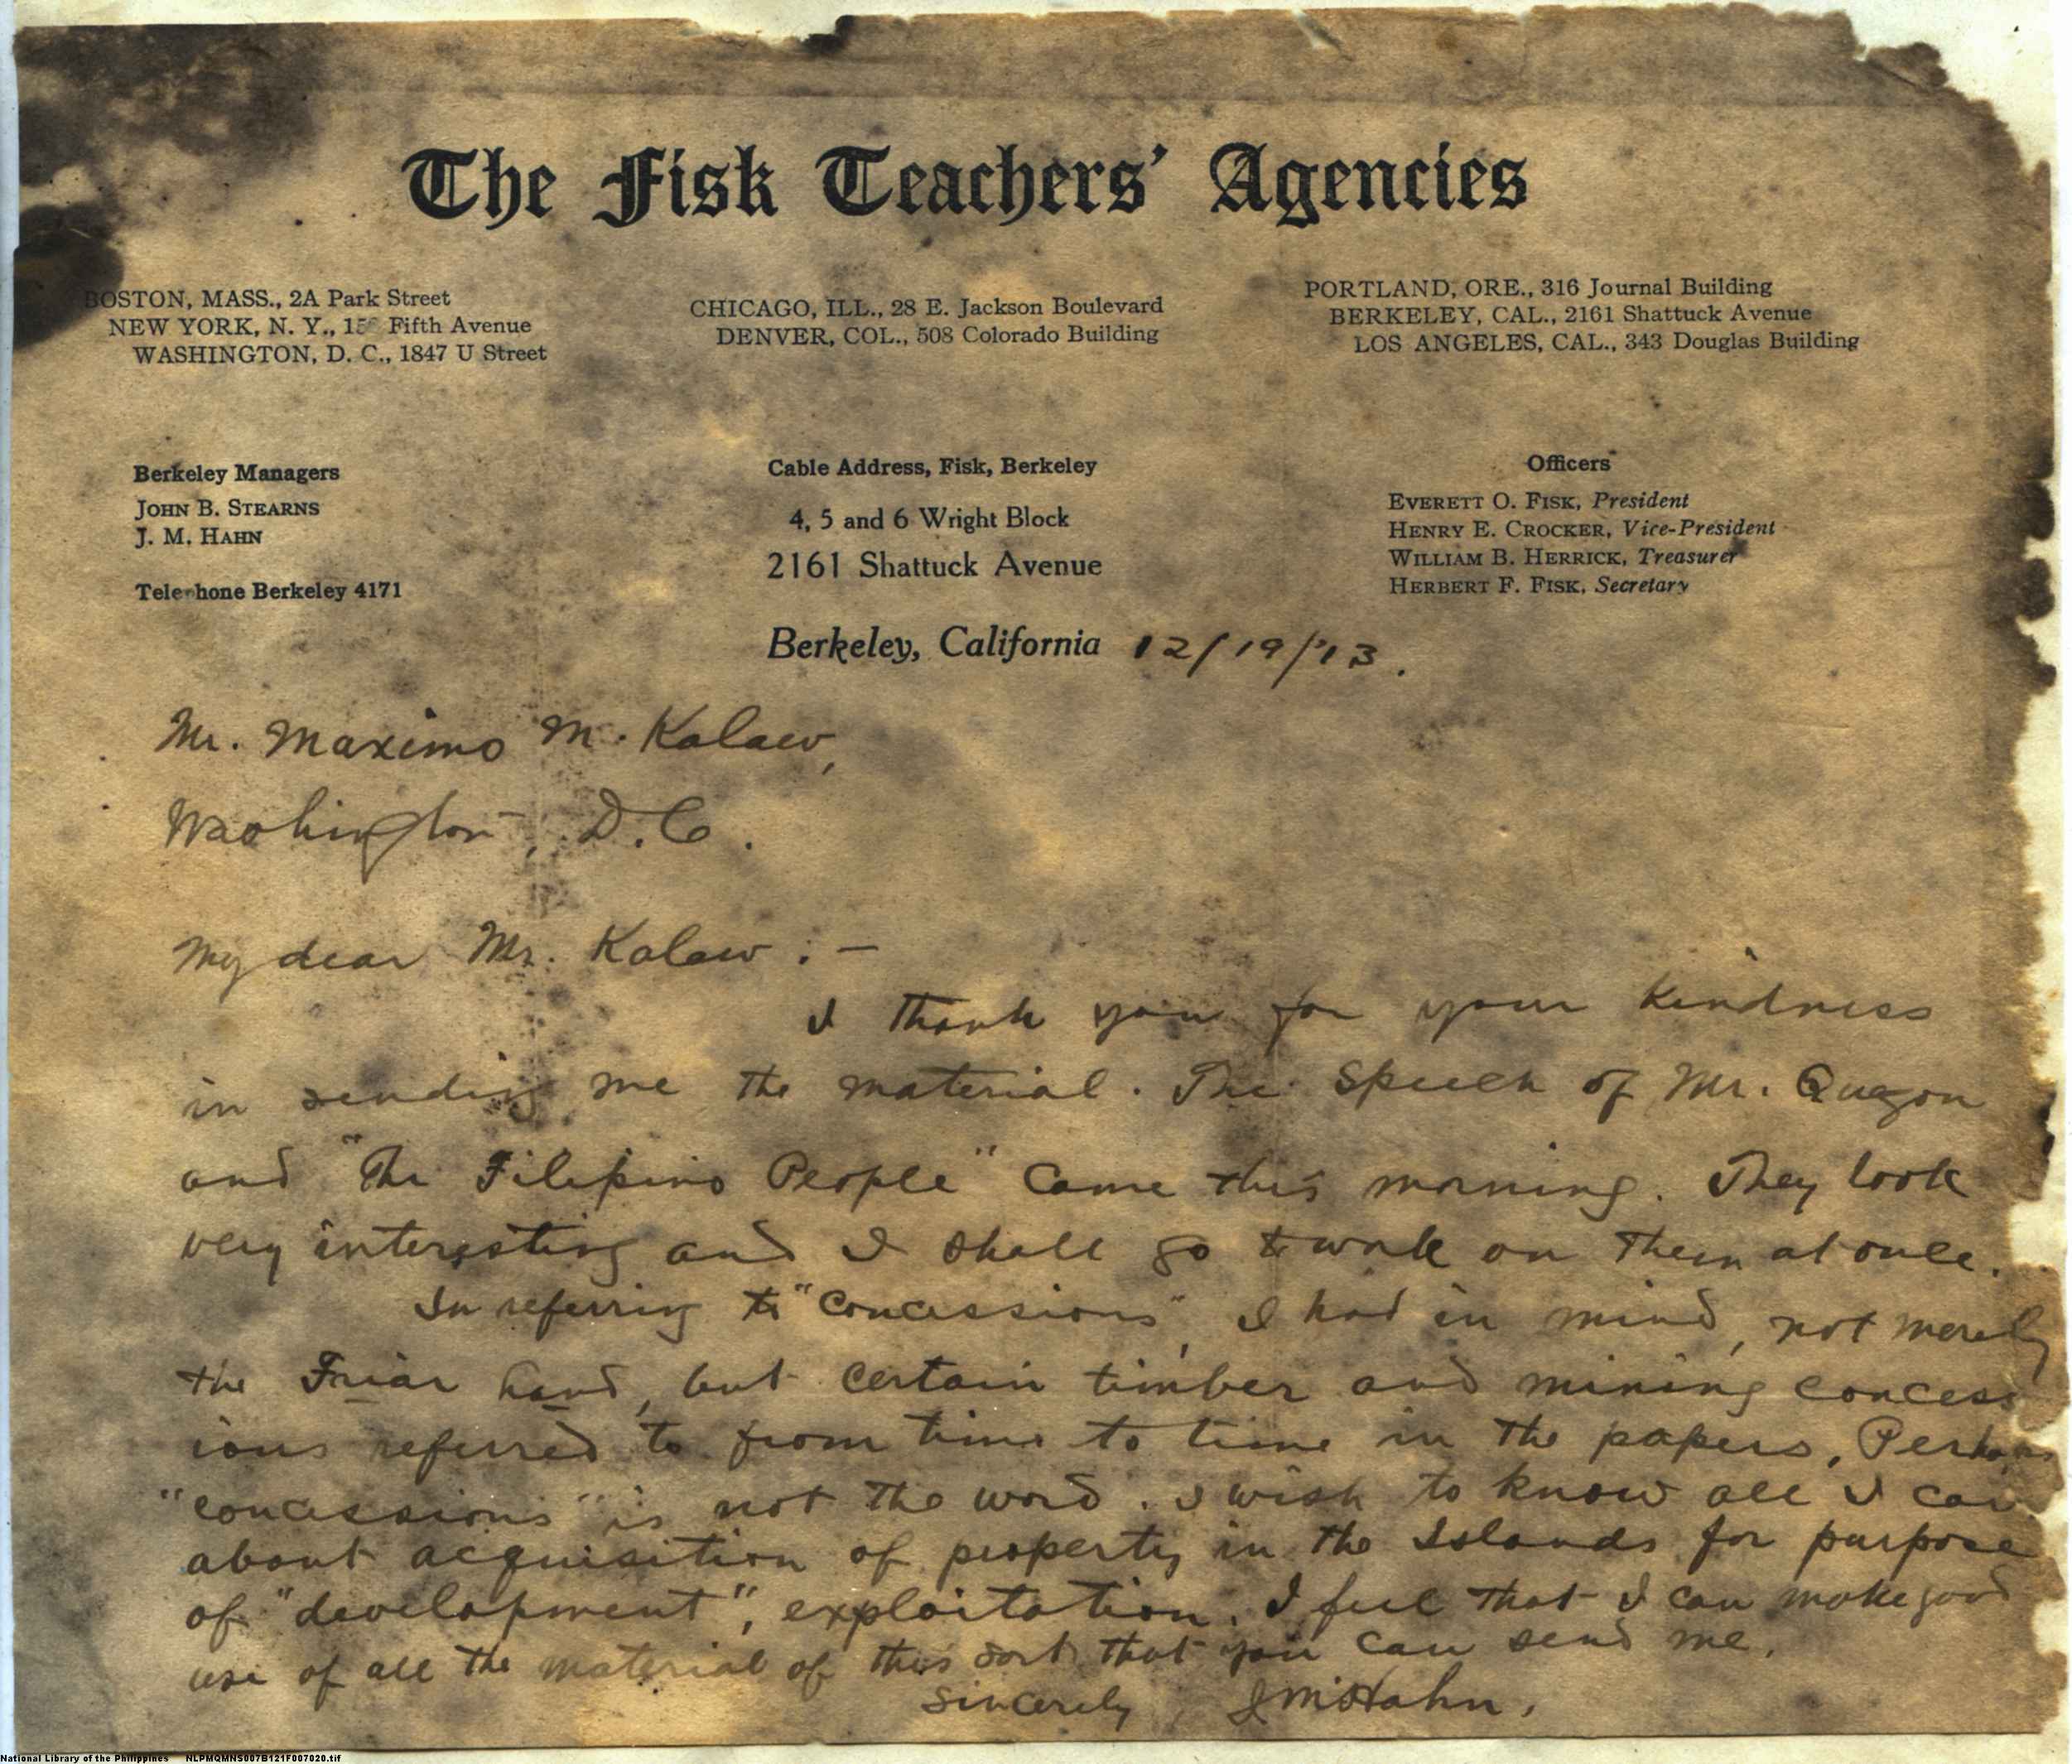 The Fisk Teachers' Agencies
BOSTON, MASS., 2A Park Street
NEW YORK, N. Y., Fifth Avenue
WASHINGTON, D. C., 1847 U Street
CHICAGO, ILL., 28 E. Jackson Boulevard
DENVER, COL., 508 Colorado Building
PORTLAND, ORE., 316 Journal Building
BERKELEY, CAL., 2161 Shattuck Avenue
LOS ANGELES, CAL., 343 Douglas Building
Berkeley Managers
JOHN B. STEARNS
J. M. HAHN
Telephone Berkeley 4171
Cable Address, Fisk, Berkeley
4, 5 and 6 Wright Block
2161 Shattuck Avenue
Berkeley, California 12/19/'13.
Officers
EVERETT O. FISK, President
HENRY E. CROCKER, Vice-President
WILLIAM B. HERRICK, Treasurer
HERBERT F. FISK, Secretary
Mr. Maximo M. Kalaw,
Washington, D.C.
My dear Mr. Kalaw :-
I thank you for your kindness
in sending me the material. The speech of Mr. Quezon
and "The Filipino People" came this morning. They look
very interesting and I shall go to work on them at once.
In referring to "concessions", I had in mind, not merely
the Friar land, but certain timber and mining concess
ions referred to from time to time in the papers. Perhaps
"concessions" is not the word. I wish to know all I can
about acquisition of property in the Islands for purpose
of "development", exploitation. I feel that I can make good
use of all the material of this sort that you can send me.
Sincerely, J M Hahn,
National Library of the Philippines NLPMQMNS007B121F007020.tif